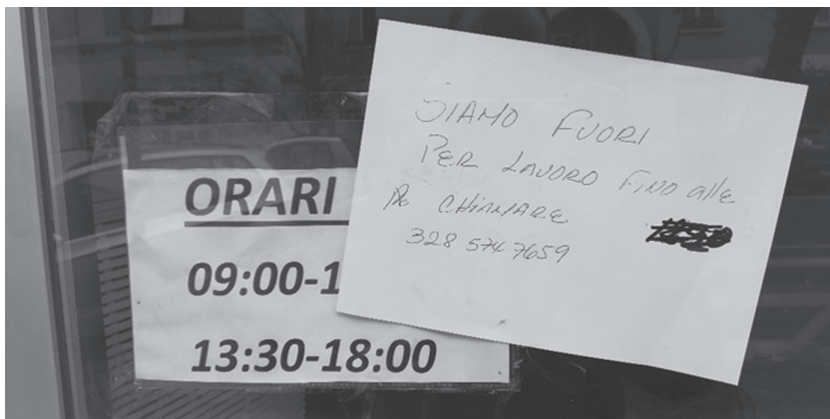 ORARI
09:00-1
13:30-18:00
SIAMO FUORI
PER LAVORO FINO alle
CHIAMARE
328 574 7659